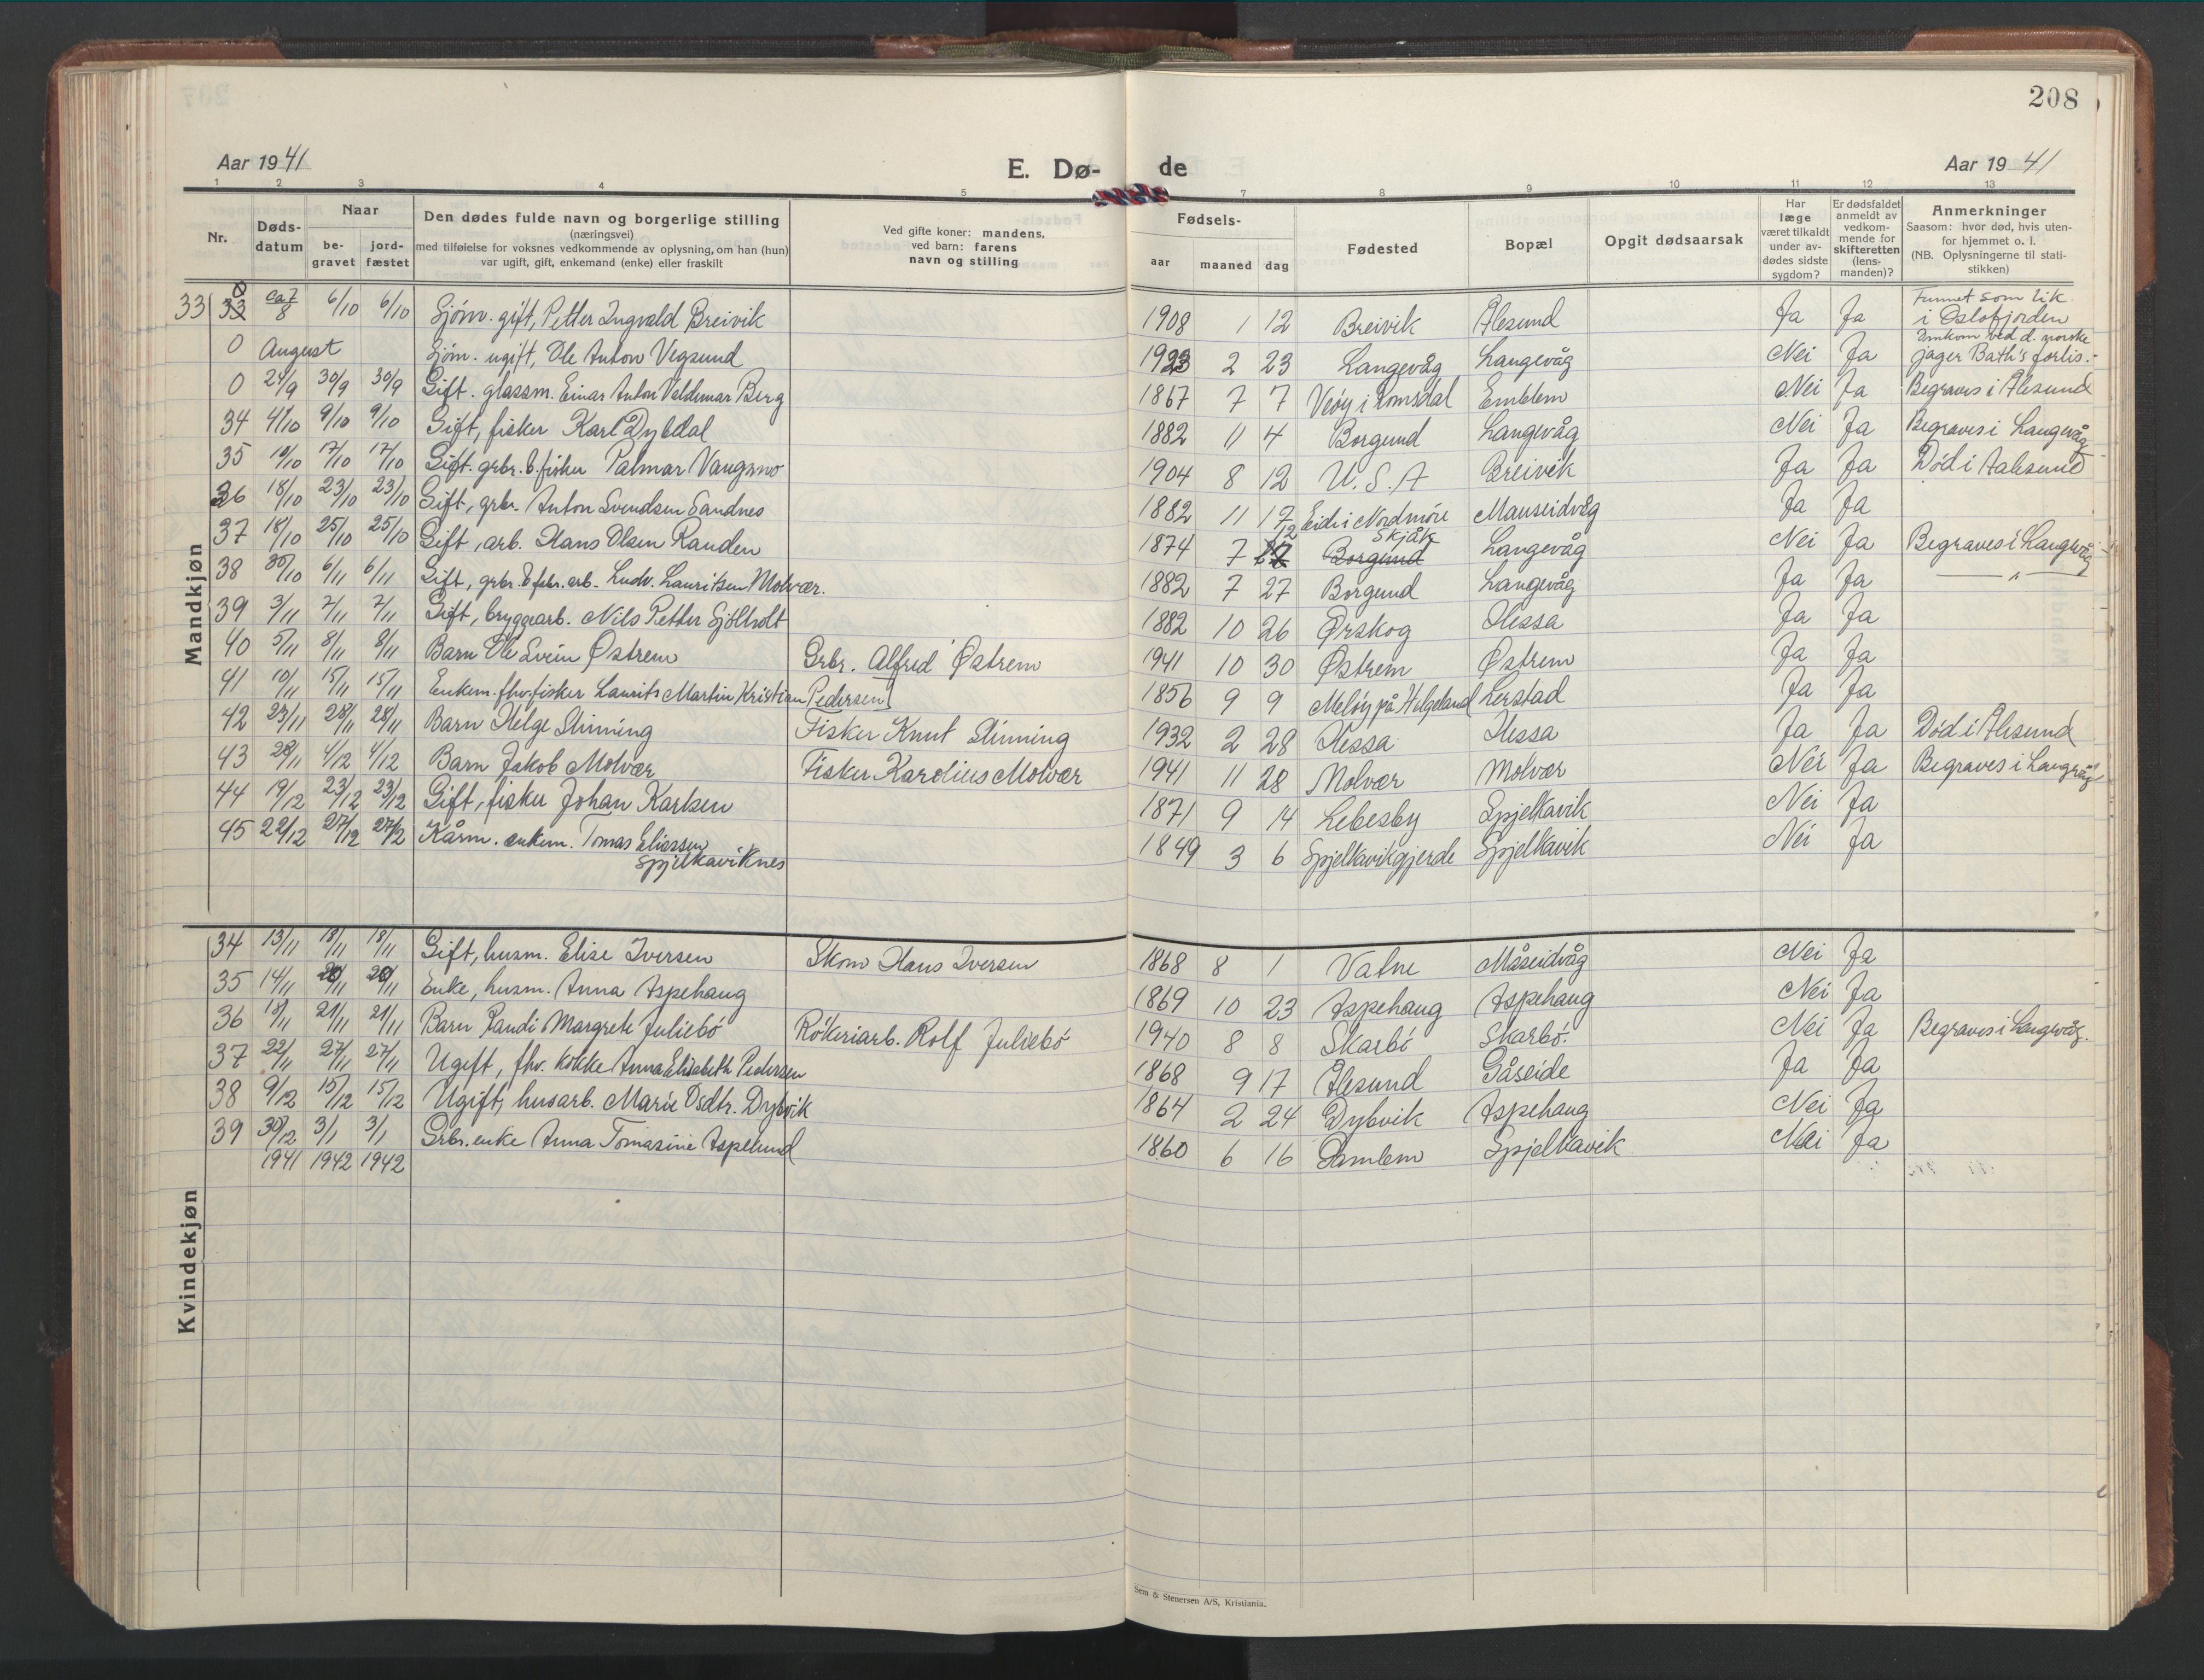 208
Aar 1941 E. Dø- de Aar 1941
1 2 3 4 5 7 8 9 10 11 12 13
Nr. Døds-datum Naar be-gravet jord-fæstet
Den dødes fulde navn og borgerlige stilling
(næringsvei)
med tilføielse for voksnes vedkommende av oplysning, om han (hun)
var ugift, gift, enkemand (enke) eller fraskilt
Ved gifte koner: mandens,
ved barn: farens
navn og stilling
Fødsels-
aar maaned dag
Fødested
Bopæl
Opgit dødsaarsak
Har
læge
været tilkaldt
under av-
dødes sidste
sygdom?
Er dødsfaldet
anmeldt av
vedkom-
mende for
skifteretten
(lens-
manden)?
Anmerkninger
Saasom: hvor død, hvis uten-
for hjemmet o. l.
(NB. Oplysningerne til stati-
stikken)
Mandkjøn
33 33 0 ca 7/8 6/10 6/10 Sjøm. gift, Petter Ingvald Breivik 1908 1 12 Breivik Ålesund Ja Ja Funnet som lik i Oslofjorden
0 August Sjøm. ugift, Ole Anton Vegsund 1923 2 23 Langevåg Langevåg Nei Ja Omkom ved d. norske jager Bath's forlis.-
0 24/9 30/9 30/9 Gift. glassm. Einar Anton Valdemar Berg 1867 7 7 Veøy i Romsdal Emblem Nei Ja Begraves i Ålesund
34 4/10 9/10 9/10 Gift, fisker Karl Dybdal 1882 11 4 Borgund Langevåg Nei Ja Begraves i Langevåg
35 10/10 17/10 17/10 Gift. grbr. & fisker Palmar Vangsmo 1904 8 12 U.S.A Breivik Ja Ja Død i Aalesund
36 18/10 23/10 23/10 Gift, grbr. Anton Svendsen Sandnes 1882 11 17 Eide i Nordmøre Mauseidvåg Ja Ja
37 18/10 25/10 25/10 Gift, arb. Hans Olsen Randen 1874 7 12 Skjåk Borgund Langevåg Nei Ja Begraves i Langevåg
38 30/10 6/11 6/11 Gift, grbr. & febr. arb. Ludv. Lauritsen Molvær. 1882 7 27 Borgund Langevåg Ja Ja — " —
39 3/11 7/11 7/11 Gift, bryggearb. Nils Petter Sjøholt 1882 10 26 Ørskog Hessa Ja Ja
40 5/11 8/11 8/11 Barn Ole Svein Østrem Grbr. Alfred Østrem 1941 10 30 Østrem Østrem Ja Ja
41 10/11 15/11 15/11 Enkem. fhv. fisker Laurits Martin Kristian Pedersen 1856 9 9 Meløy på Helgeland Lerstad Ja Ja
42 23/11 28/11 28/11 Barn Helge Slinning Fisker Knut Slinning 1932 2 28 Hessa Hessa Ja Ja Død i Ålesund
43 28/11 4/12 4/12 Barn Jakob Molvær Fisker Karolius Molvær 1941 11 28 Molvær Molvær Nei Ja Begraves i Langevåg
44 19/12 23/12 23/12 Gift, fisker Johan Karlsen 1871 9 14 Lebesby Spjelkavik Nei Ja
45 22/12 27/12 27/2 Kårm. enkem. Tomas Eliassen 1849 3 6 Spjelkavikgjerde Spjelkavik Nei Ja
Spjelkaviknes
Kvindekjøn
34 13/11 18/11 18/11 Gift, husm. Elise Iversen Skom Hans Iversen 1868 8 1 Vatne Måseidvåg Nei Ja
35 14/11 20/11 20/11 Enke, husm. Anna Aspehaug 1869 10 23 Aspehaug Aspehaug Nei Ja
36 18/11 21/11 21/11 Barn Randi Margrete Juliebø Røkeriarb. Rolf Juliebø 1940 8 8 Skarbø Skarbø. Nei Ja Begraves i Langevåg.
37 22/11 27/11 27/11 Ugift, fhv. kokke Anna Elisabeth Pedersen 1868 9 17 Ålesund Gåseide Ja Ja
38 9/12 15/12 15/12 Ugift, husarb. Marie Osdtr. Dybvik 1864 2 24 Dybvik Aspehaug Nei Ja
39 30/12 3/1 3/1 Grbr. enke Anna Tomasine Aspelund 1860 6 16 Gamlem Spjelkavik Nei Ja
1941 1942 1942
Sem & Stenersen A/S, Kristiania.